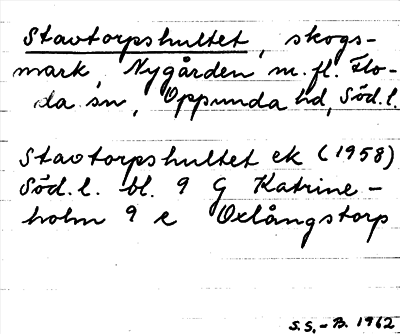 Stavtorpshultet, skogs-
mark, Nygården m.fl. Flo-
da sn, Oppunda hd, Söd.l.
Stavtorpshultet ek (1958)
Söd.l. bl. 9 G Katrine-
holm 9 e Oxlångstorp
S.S.-B. 1962